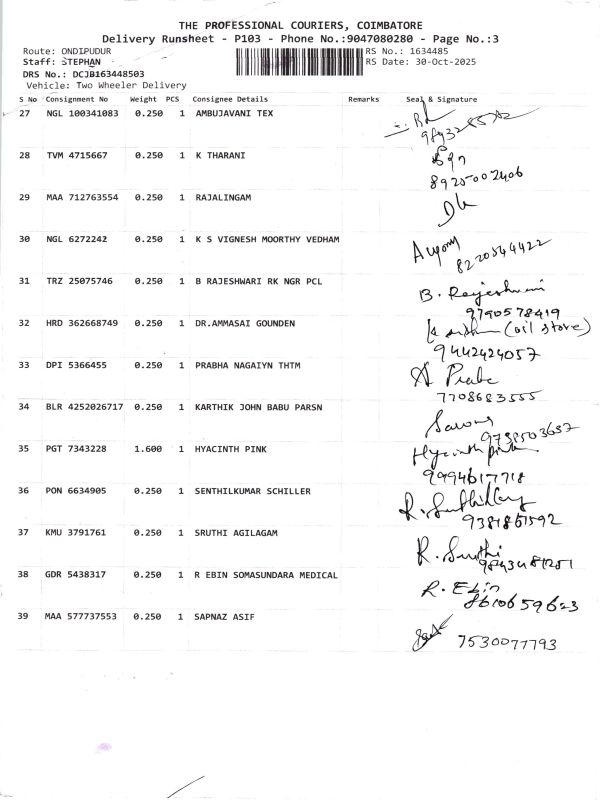 THE PROFESSIONAL COURIERS, COIMBATORE
Delivery Runsheet - P103 - Phone No.:9047080280 - Page No.:3
Route: ONDIPUDUR RS No.: 1634485
Staff: STEPHAN RS Date: 30-Oct-2025
DRS No.: DCJB163448503
Vehicle: Two Wheeler Delivery
S No Consignment No Weight PCS Consignee Details Remarks Seal & Signature
27 NGL 100341083 0.250 1 AMBUJAVANI TEX
28 TVM 4715667 0.250 1 K THARANI
8925002406
29 MAA 712763554 0.250 1 RAJALINGAM
30 NGL 6272242 0.250 1 K S VIGNESH MOORTHY VEDHAM
8220544422
31 TRZ 25075746 0.250 1 B RAJESHWARI RK NGR PCL B. Rajeshwari
9790578419
32 HRD 362668749 0.250 1 DR.AMMASAI GOUNDEN (oil store)
9442424057
33 DPI 5366455 0.250 1 PRABHA NAGAIYN THTM
7708683555
34 BLR 4252026717 0.250 1 KARTHIK JOHN BABU PARSN
9738503657
35 PGT 7343228 1.600 1 HYACINTH PINK Hyacinth pink
9994617718
36 PON 6634905 0.250 1 SENTHILKUMAR SCHILLER
9381861592
37 KMU 3791761 0.250 1 SRUTHI AGILAGAM R. Sruthi
38 GDR 5438317 0.250 1 R EBIN SOMASUNDARA MEDICAL R. Ebin
8610659623
39 MAA 577737553 0.250 1 SAPNAZ ASIF 7530077793